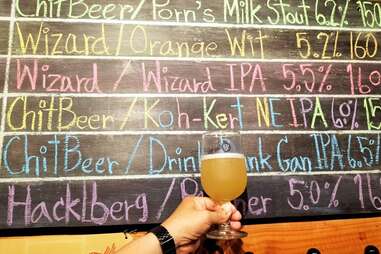 ChitBeer/Porn's Milk Stout 6.2%
Wizard/Orange Wit 5.2% 160
Wizard / Wizard IPA 5.5%
ChitBeer / Koh-Kret NEIPA
ChitBeer / Gan IPA 6.5
Hacklberg / 5.0%